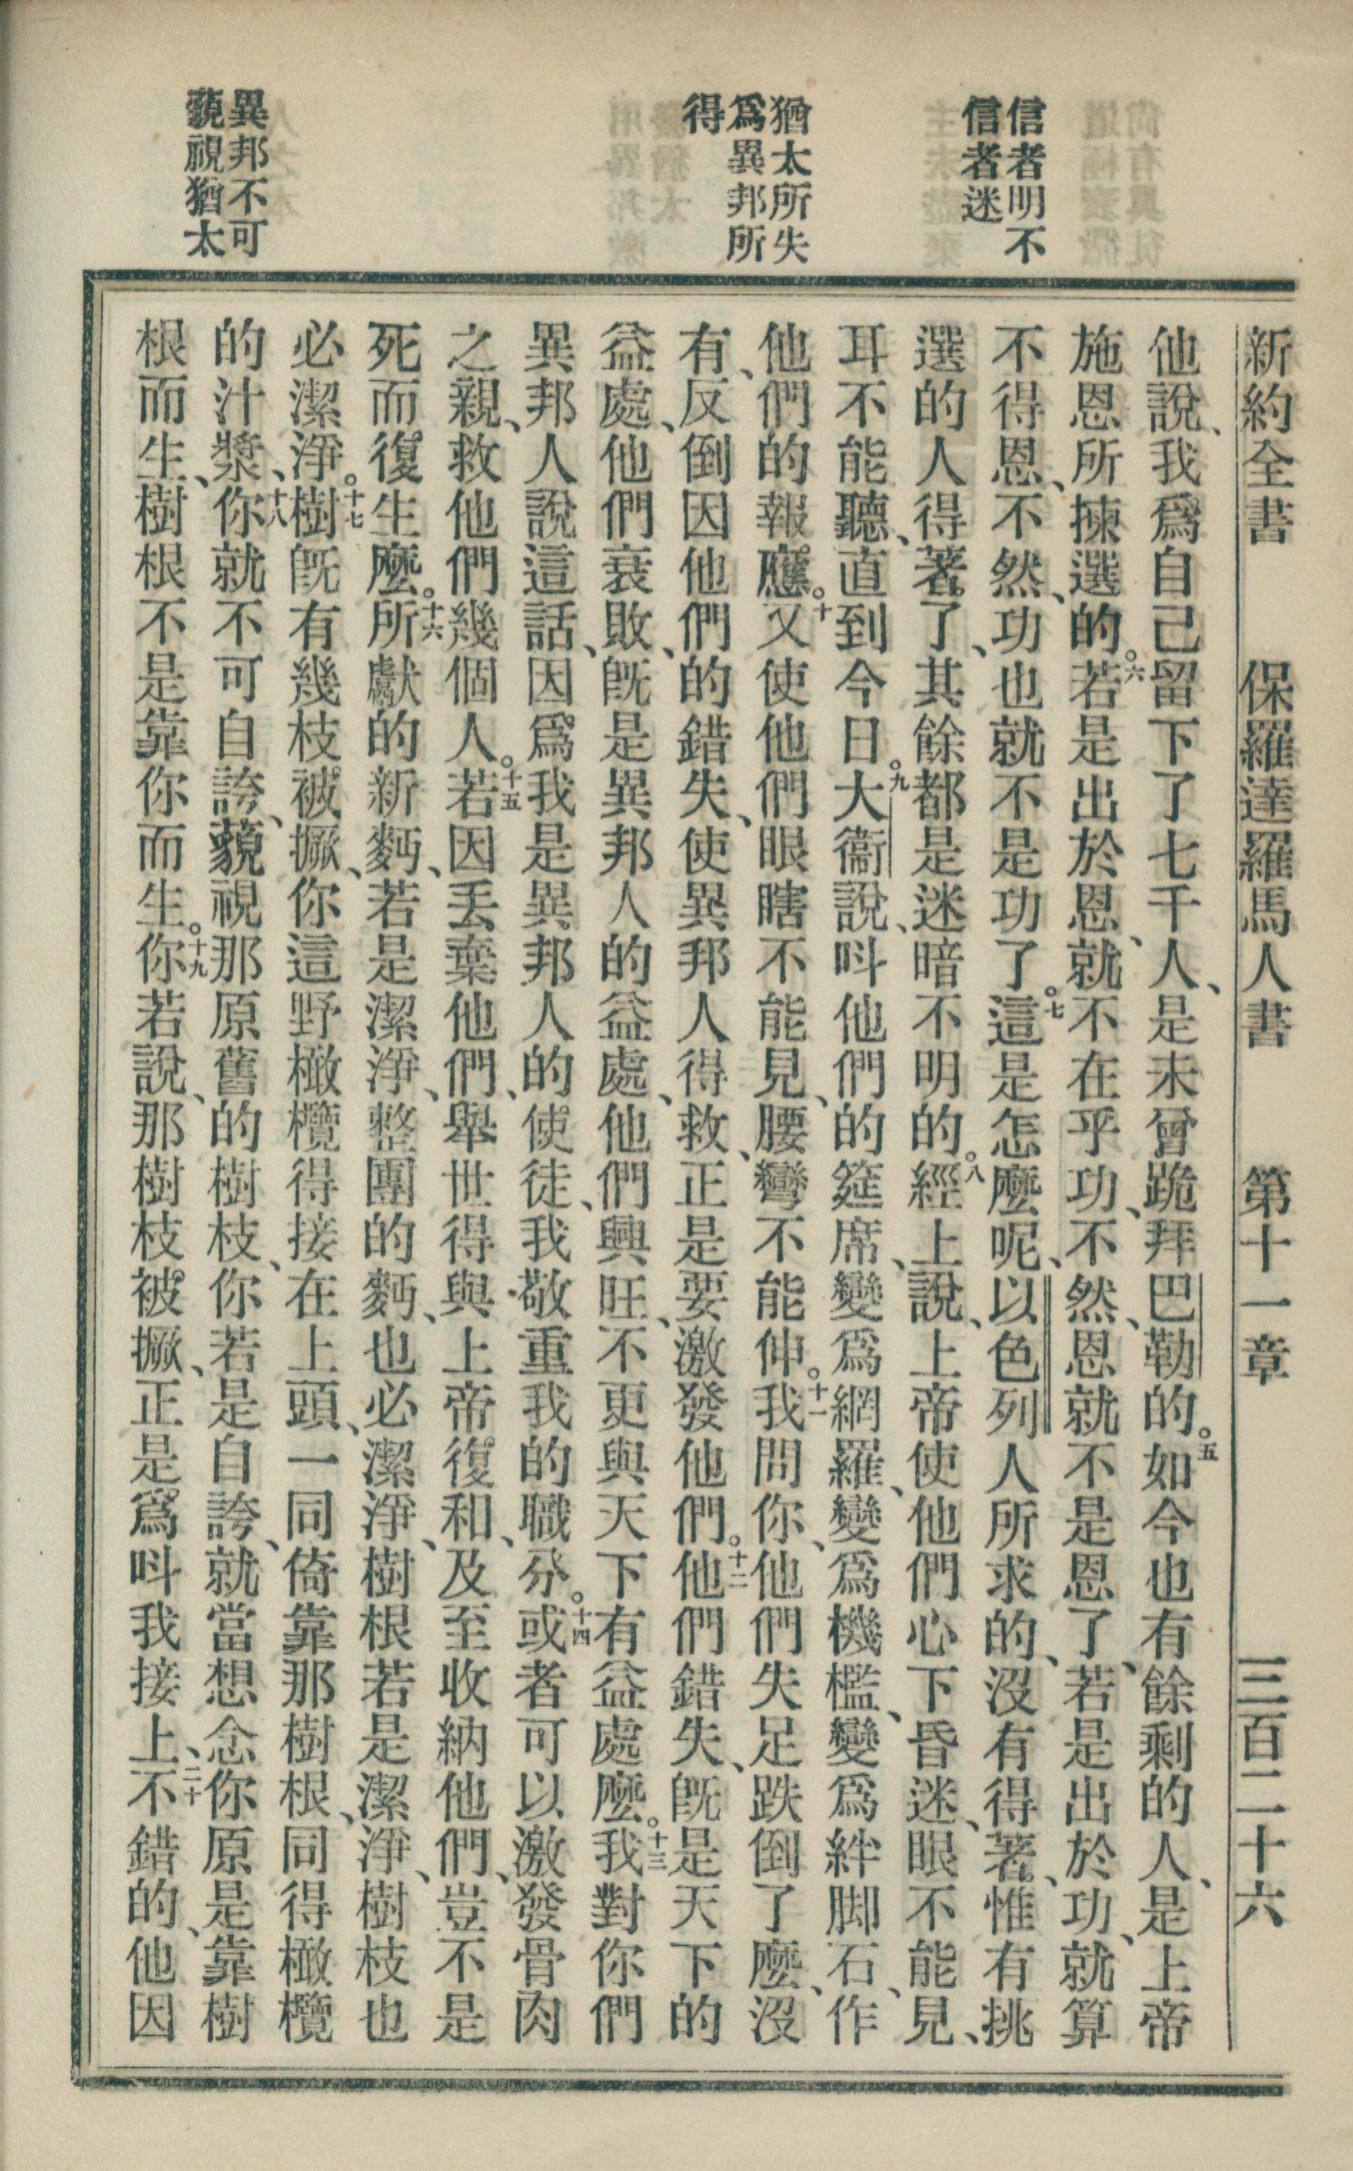 新約全書　保羅達羅馬人書　第十一章　三百二十六
信者明不
信者迷
猶太所失
爲異邦所
得
異邦不可
藐視猶太
他說、我爲自己留下了七千人、是未曾跪拜巴勒的。五如今也有餘剩的人、是上帝
施恩所揀選的。六若是出於恩、就不在乎功、不然、恩就不是恩了、若是出於功、就算
不得恩、不然、功也就不是功了。七這是怎麼呢、以色列人所求的、沒有得著、惟有挑
選的人得著了、其餘都是迷暗不明的。八經上說、上帝使他們心下昏迷、眼不能見、
耳不能聽、直到今日。九大衞說、呌他們的筵席、變爲網羅、變爲機檻、變爲絆脚石、作
他們的報應。十又使他們眼瞎不能見、腰彎不能伸。十一我問你、他們失足跌倒了麼、沒
有、反倒因他們的錯失、使異邦人得救、正是要激發他們。十二他們錯失、旣是天下的
益處、他們衰敗、旣是異邦人的益處、他們興旺、不更與天下有益處麼。十三我對你們
異邦人說這話、因爲我是異邦人的使徒、我敬重我的職分。十四或者可以激發骨肉
之親、救他們幾個人。十五若因丟棄他們、舉世得與上帝復和、及至收納他們、豈不是
死而復生麼。十六所獻的新麪、若是潔淨、整團的麪、也必潔淨、樹根若是潔淨、樹枝也
必潔淨。十七樹旣有幾枝被撅、你這野橄欖得接在上頭、一同倚靠那樹根、同得橄欖
的汁漿、十八你就不可自誇、藐視那原舊的樹枝、你若是自誇、就當想念你原是靠樹
根而生、樹根不是靠你而生。十九你若說、那樹枝被撅、正是爲呌我接上、二十不錯的、他因